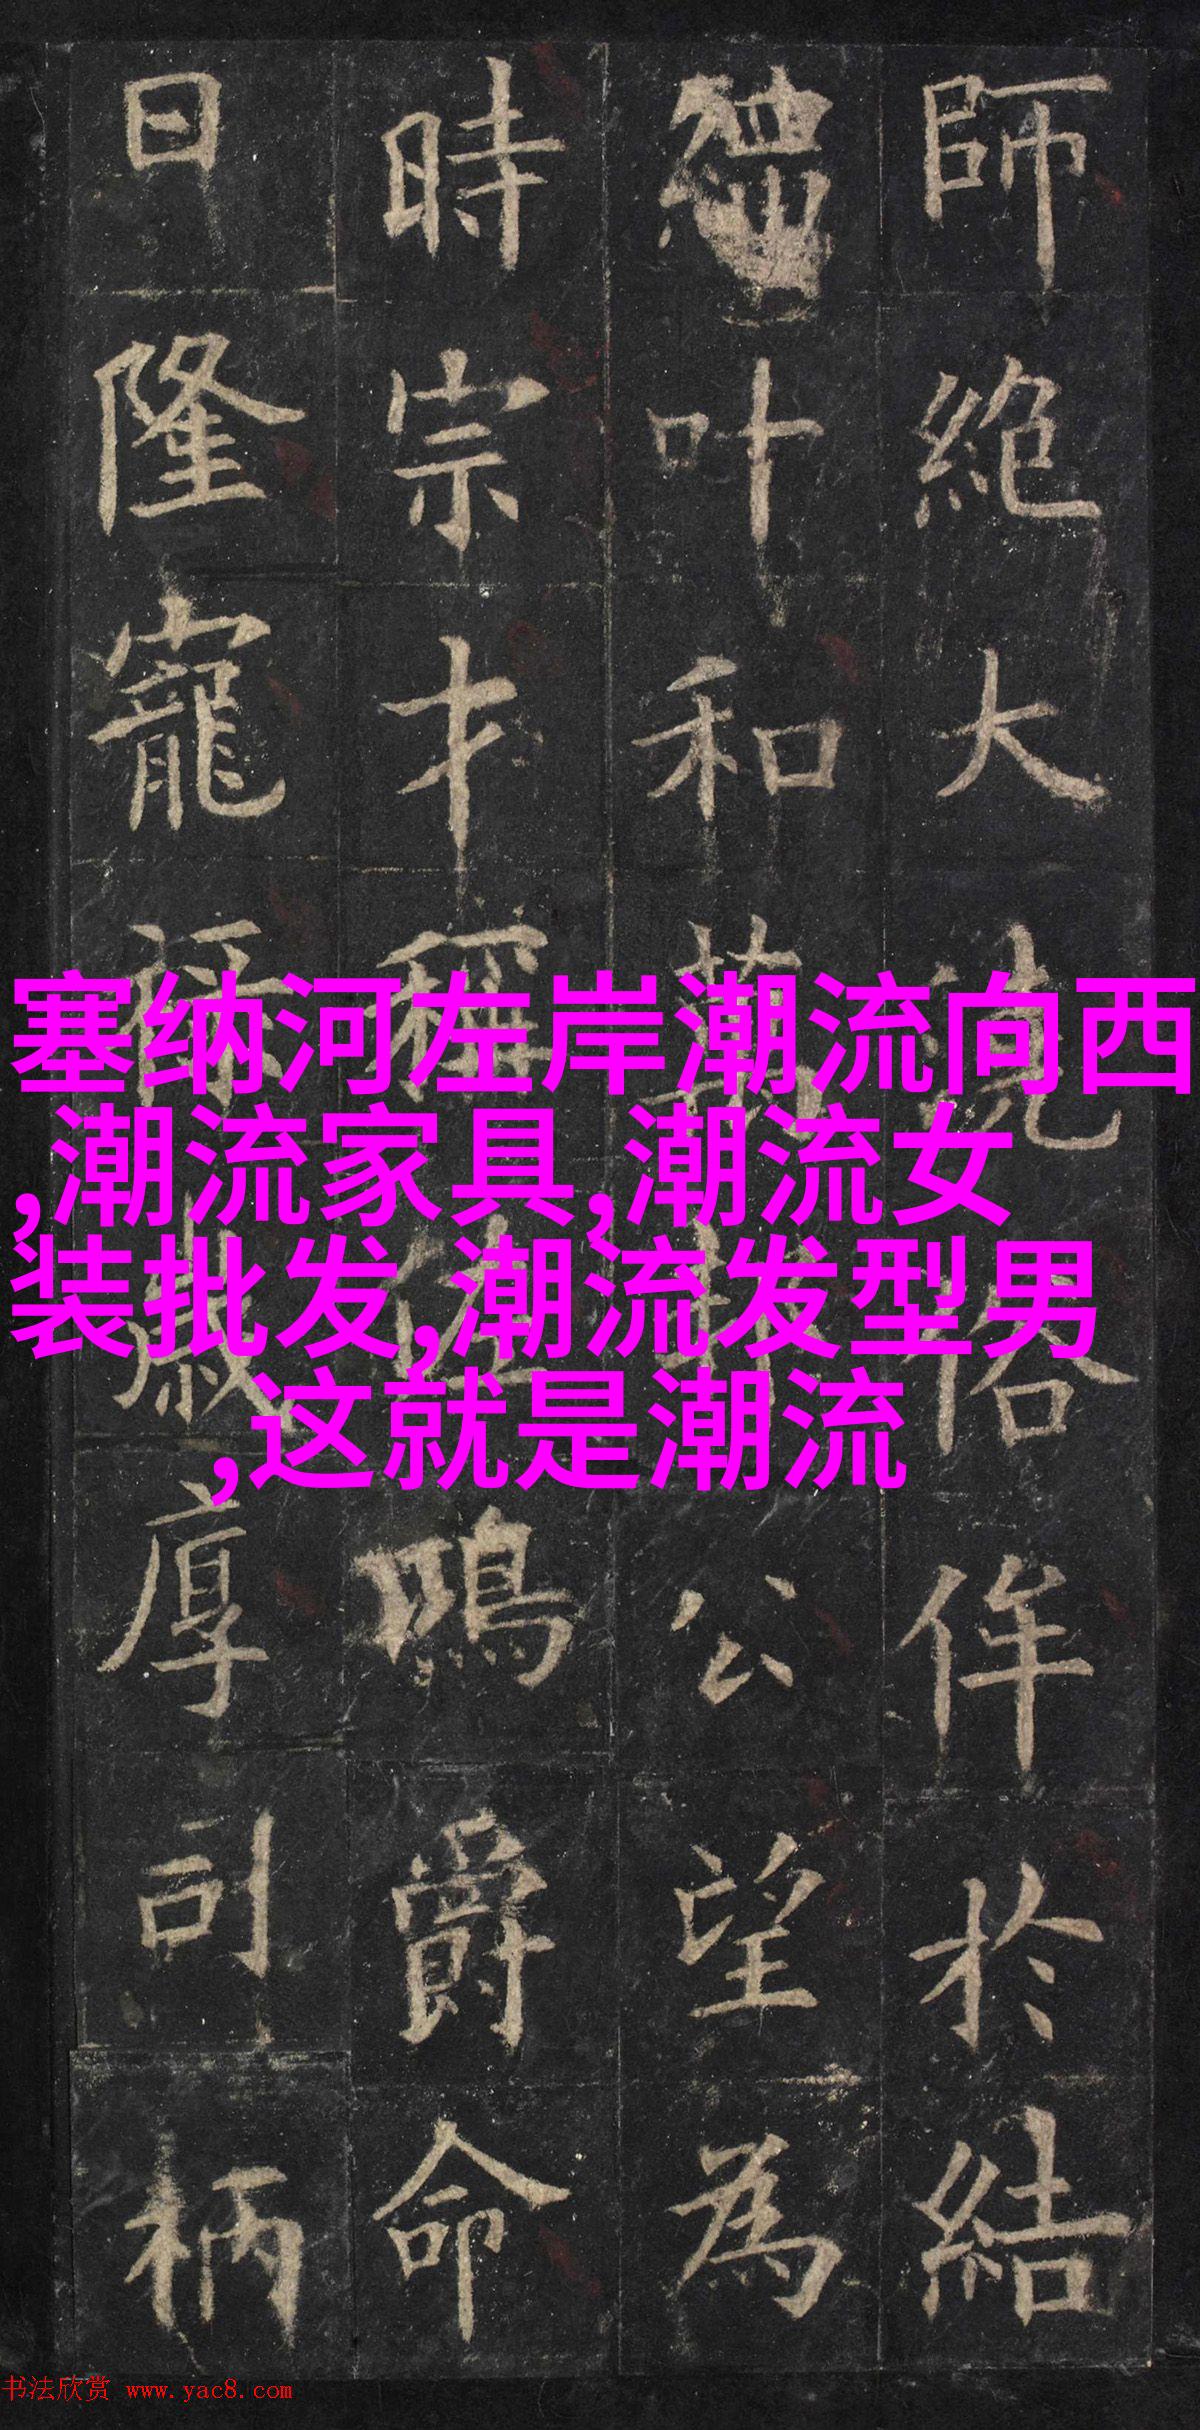 師絶大俗侔於結
叶和公望為
時宗才稱鳴爵命
日隆寵歲厚司柄
塞纳河左岸潮流向西
,潮流家具,潮流女
装批发,潮流发型男
,这就是潮流
书法欣赏 www.yac8.com